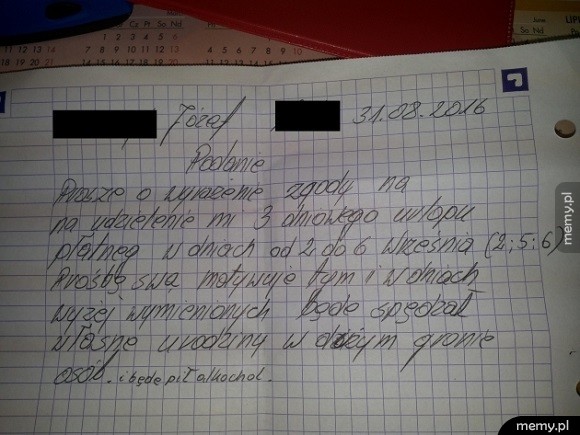 Cz Pt So Nd
Pt So Nd
LIPI
Józef 31.08.2016
Podanie
Proszę o wyrażenie zgody na
na udzielenie mi 3 dniowego urlopu
płatneg w dniach od 2 do 6 września (2;5;6)
Prośbę swą motywuję tym i w dniach
wyżej wymienionych będe spęðzał
własne urodziny w dużym gronie
osób. i będe pił alkochol.
memy.pl
memy.pl